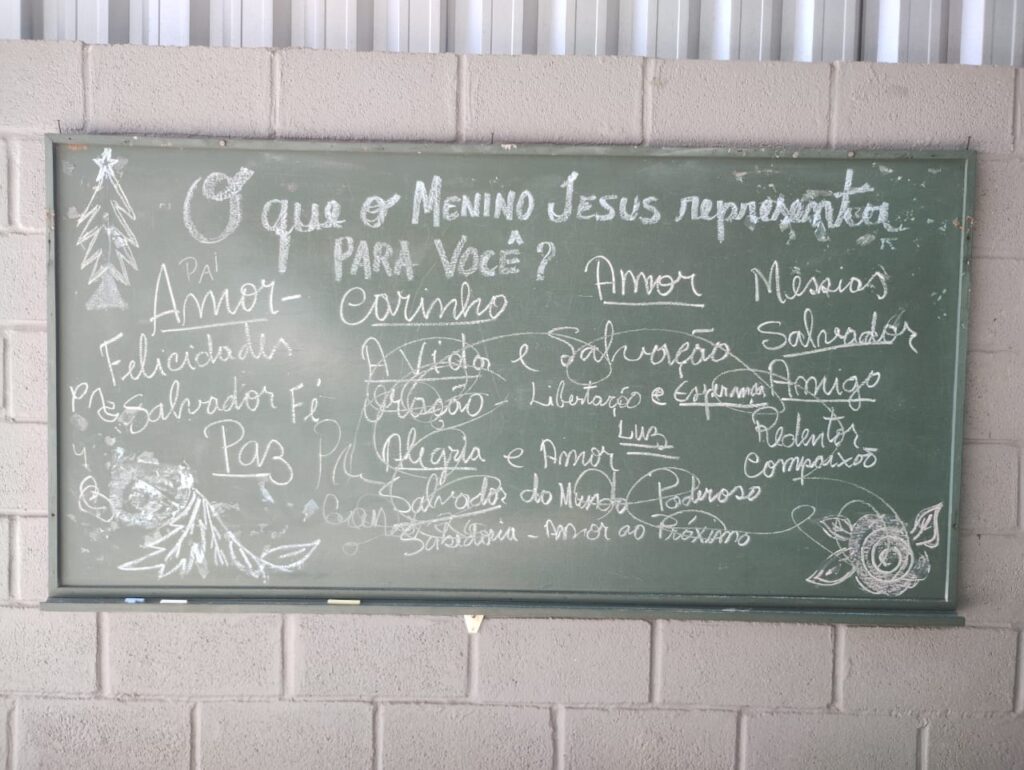 O que o MENINO JESUS representa
PARA VOCÊ?
PAI
Amor- Carinho Amor Messias
Felicidades A Vida e Salvação Salvador
Salvador Fé Oração- Libertação e Esperança Amigo
Paz Alegria e Amor Luz Redentor
Compaixão
Salvador do Mundo Poderoso
Sabedoria - Amor ao Próximo